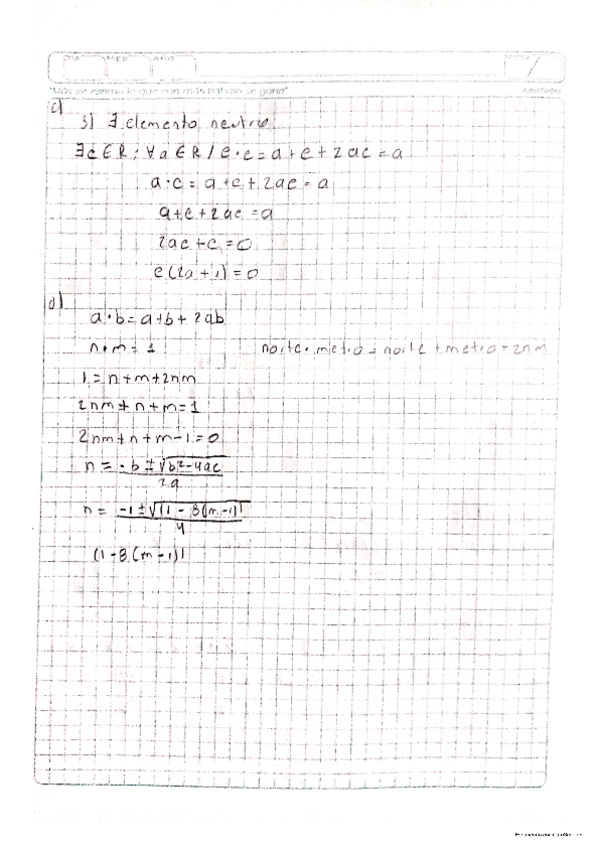 DIA MES AÑO NOTA
"Más se estima lo que con más trabajo se gana"
c)
3) ∃ elemento neutro
∃e ∈ R ; ∀a ∈ R / e · e = a + e + 2ae = a
a · e = a + e + 2ae = a
a + e + 2ae = a
2ae + e = 0
e(2a + 1) = 0
d)
a · b = a + b + 2ab
n · m = 1 norte · metro = norte + metro + 2nm
1 = n + m + 2nm
2nm + n + m = 1
2nm + n + m - 1 = 0
n = -b ± √b² - 4ac / 2a
n = -1 ± √(1 - 8(m - 1)) / 4
(1 - 8(m - 1))